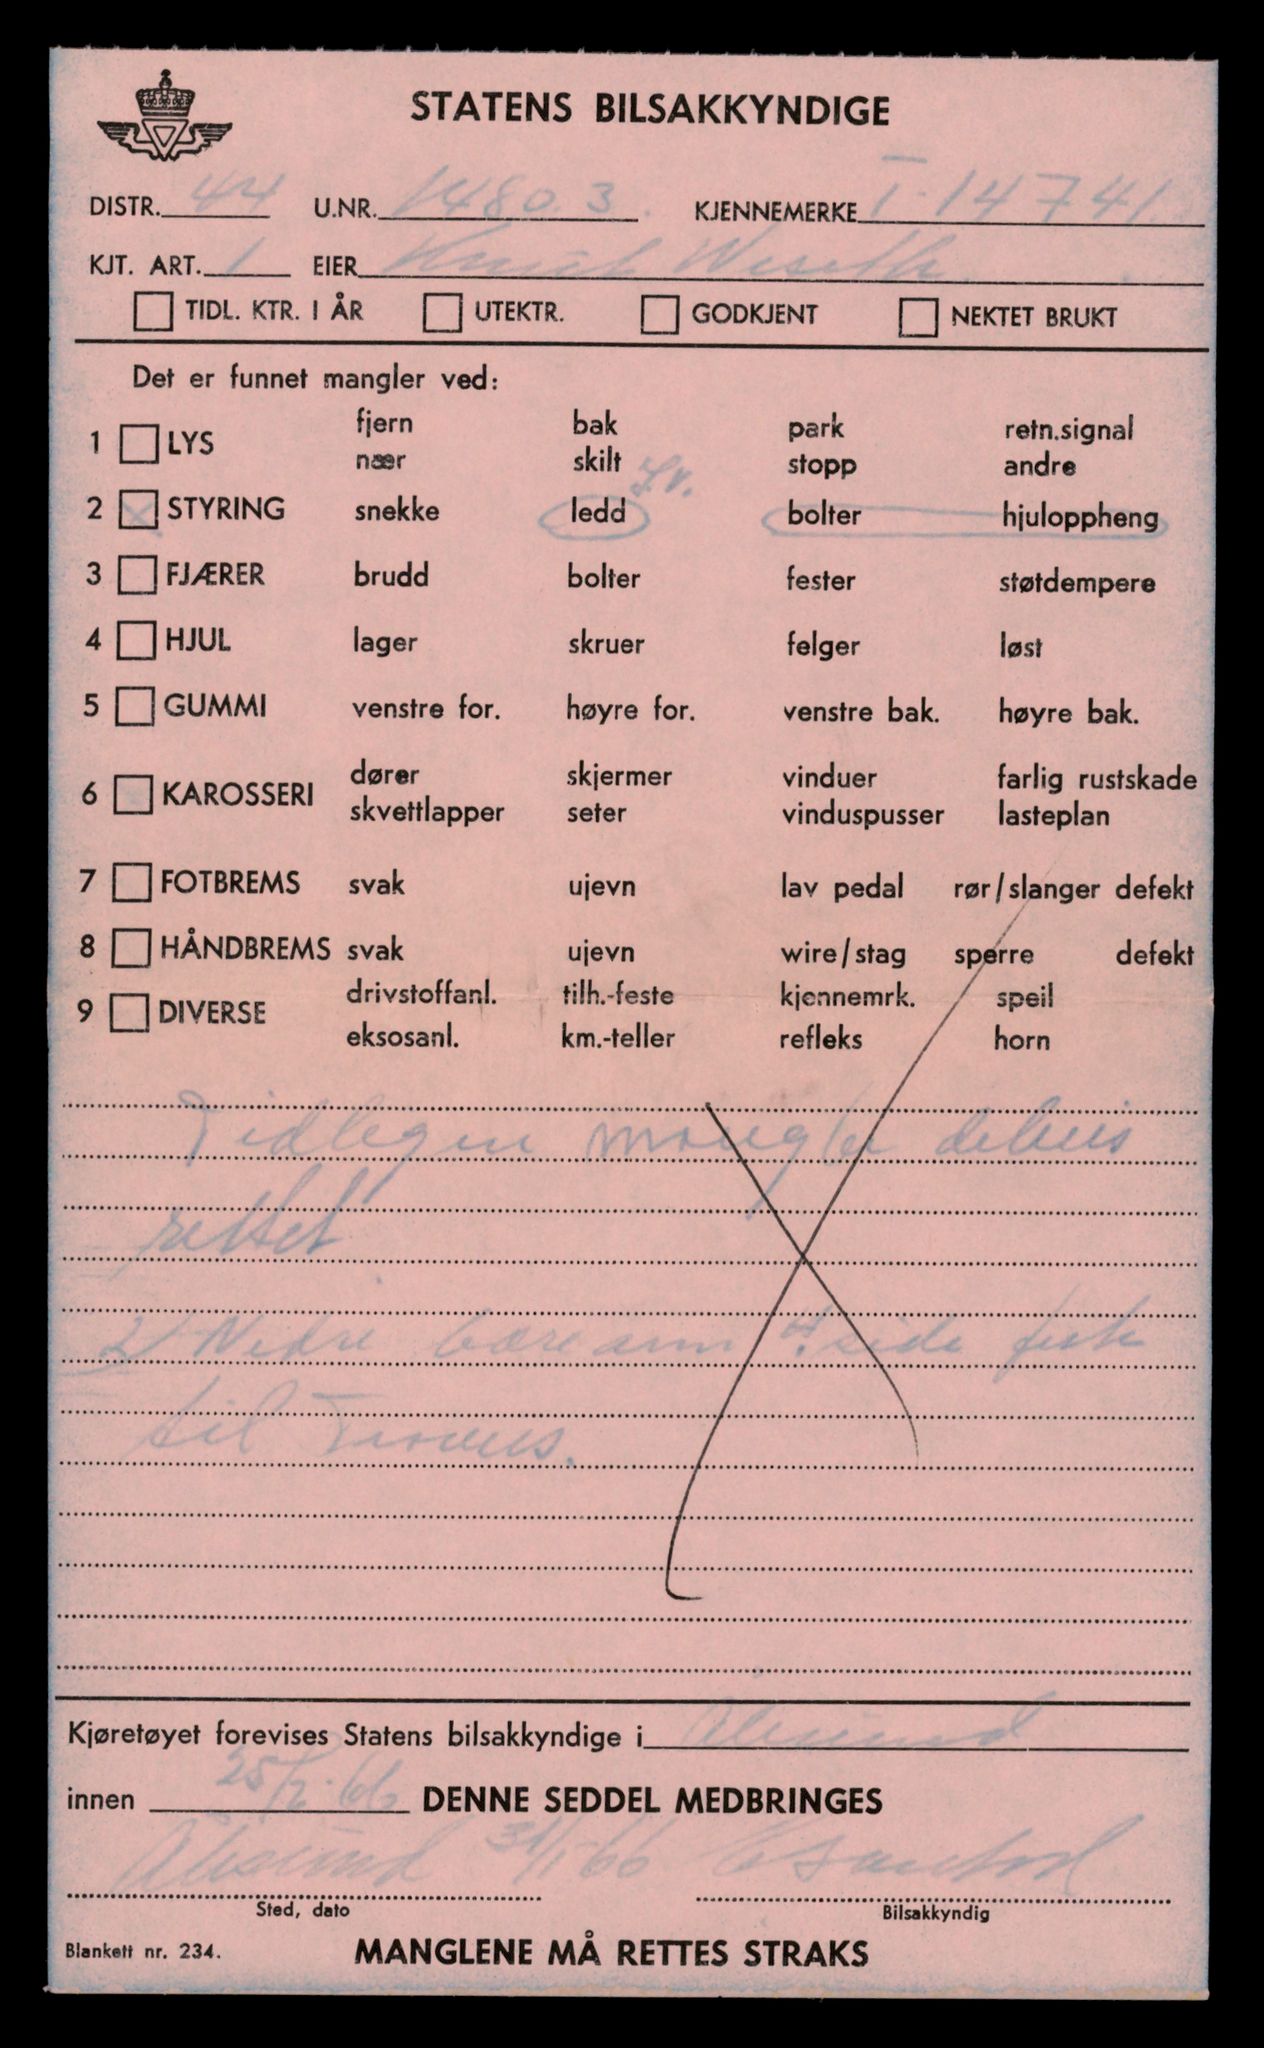 STATENS BILSAKKYNDIGE
DISTR. 44 U.NR. 14803. KJENNEMERKE T-14741.
KJT. ART. 1 EIER Knut
TIDL. KTR. I ÅR UTEKTR. GODKJENT NEKTET BRUKT
Det er funnet mangler ved:
1 LYS fjern bak park retn.signal
nær skilt stopp andre
2 STYRING snekke ledd bolter hjuloppheng
3 FJÆRER brudd bolter fester støtdempere
4 HJUL lager skruer felger løst
5 GUMMI venstre for. høyre for. venstre bak. høyre bak.
6 KAROSSERI dører skjermer vinduer farlig rustskade
skvettlapper seter vinduspusser lasteplan
7 FOTBREMS svak ujevn lav pedal rør/slanger defekt
8 HÅNDBREMS svak ujevn wire/stag sperre defekt
9 DIVERSE drivstoffanl. tilh.-feste kjennemrk. speil
eksosanl. km.-teller refleks horn
Tidlegen mangler delvis
rettet
2/ Nedre bærearm H. side
til
Kjøretøyet forevises Statens bilsakkyndige i Ålesund
innen 25/2-66 DENNE SEDDEL MEDBRINGES
Ålesund 31/1 66
Sted, dato Bilsakkyndig
Blankett nr. 234. MANGLENE MÅ RETTES STRAKS